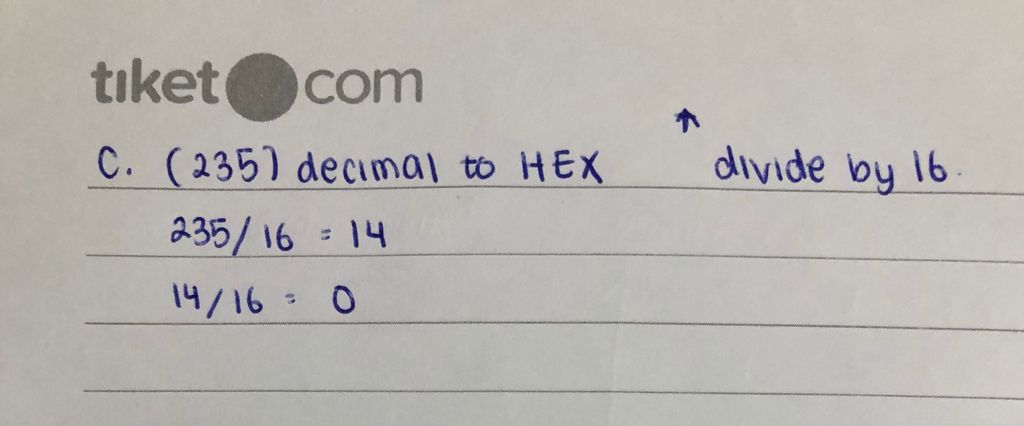 tiket com
C. (235) decimal to HEX ↑ divide by 16.
235/16 = 14
14/16 = 0